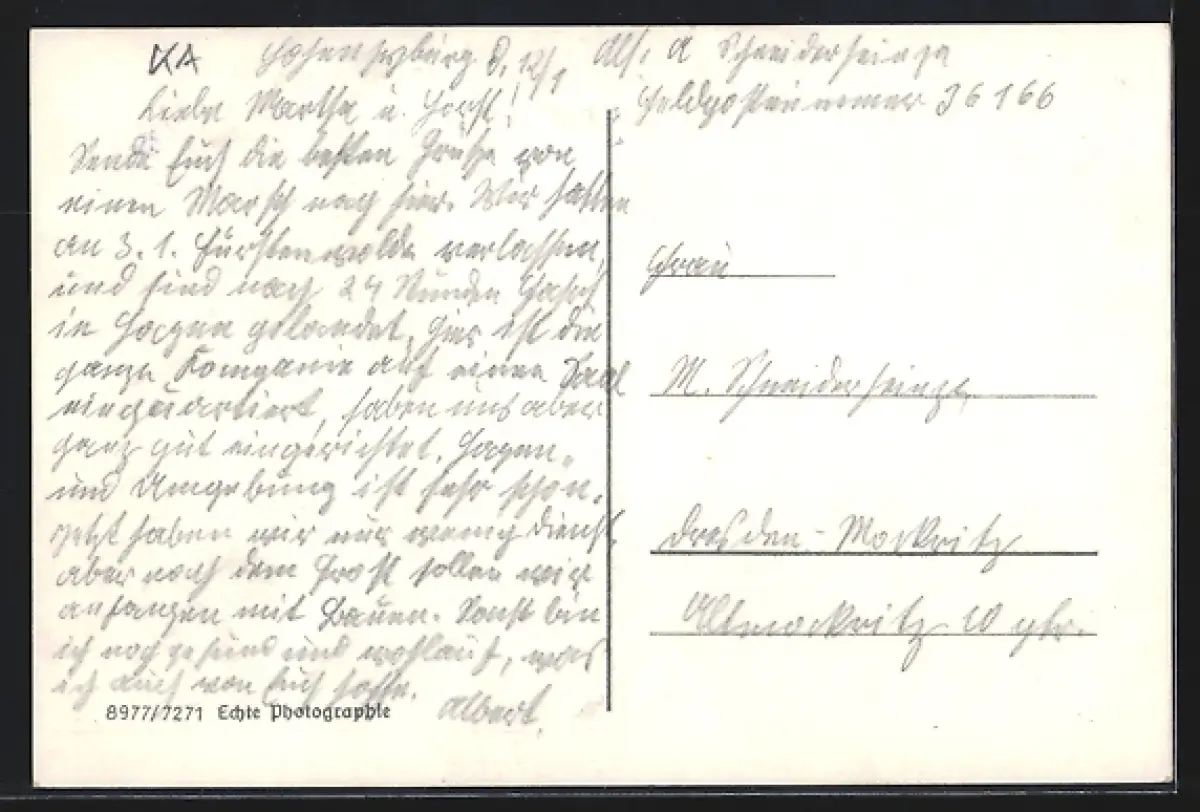 KA
Hohensyburg d. 12/1
Liebe Martha u. Horst!
Sende Euch die besten Grüße von
einen Marsch nach hier. Wir hatten
am 3. 1. Fürstenwalde verlassen,
und sind nach 24 Stunden Fahrt
in Hagen gelandet. Hier ist die
ganze Kompanie auf einen Saal
einquartiert, haben uns aber
ganz gut eingerichtet. Hagen
und Umgebung ist sehr schön.
Jetzt haben wir nur wenig Dienst,
aber nach dem Frost sollen wir
anfangen mit Bauen. Sonst bin
ich noch gesund und wohlauf, was
ich auch von Euch hoffe.
Albert
8977/7271 Echte Photographie
Abs. A Schneiderheinze
Feldpostnummer 36166
Frau
M. Schneiderheinze
Dresden-Mockritz
Altmockritz 10 ptr.